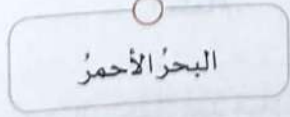 البحرُ الأحمرُ